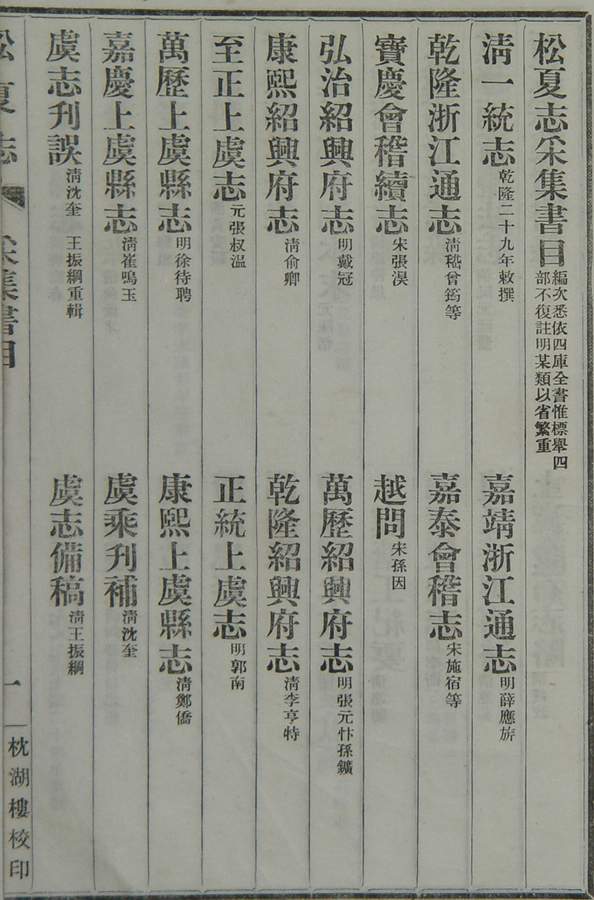 松夏志采集書目 編次悉依四庫全書惟標舉四部不復註明某類以省繁重
清一統志 乾隆二十九年敕撰 嘉靖浙江通志 明薛應旂
乾隆浙江通志 清嵇曾筠等 嘉泰會稽志 宋施宿等
寶慶會稽續志 宋張淏 越問 宋孫因
弘治紹興府志 明戴冠 萬歷紹興府志 明張元忭孫鑛
康熙紹興府志 清俞卿 乾隆紹興府志 清李亨特
至正上虞志 元張叔溫 正統上虞志 明郭南
萬歷上虞縣志 明徐待聘 康熙上虞縣志 清鄭僑
嘉慶上虞縣志 清崔鳴玉 虞乘刋補 清沈奎
虞志刋誤 清沈奎 王振綱重輯 虞志備稿 清王振綱
松夏志 采集書目 一 枕湖樓校印